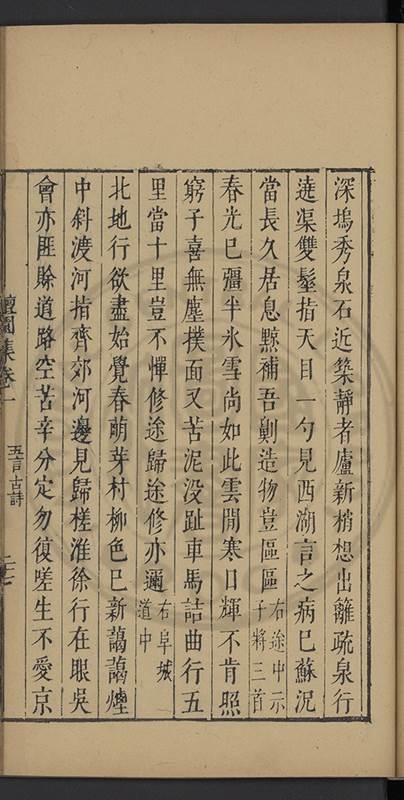 深塢秀泉石近築靜者廬新梢想出籬疏泉行
遶渠雙髻指天目一勺見西湖言之病已蘇況
當長久居息黥補吾劓造物豈區區右途中示
子將三首
春光已彊半氷雪尚如此雲閒寒日輝不肯照
窮子喜無塵撲面又苦泥没趾車馬詰曲行五
里當十里豈不憚修途歸途修亦邇右阜城
道中
北地行欲盡始覺春萌芽村柳色已新藹藹煙
中斜渡河指齊郊河邊見歸槎淮徐行在眼吳
會亦匪賒道路空苦辛分定勿復嗟生不愛京
集卷一
五言古詩
二七